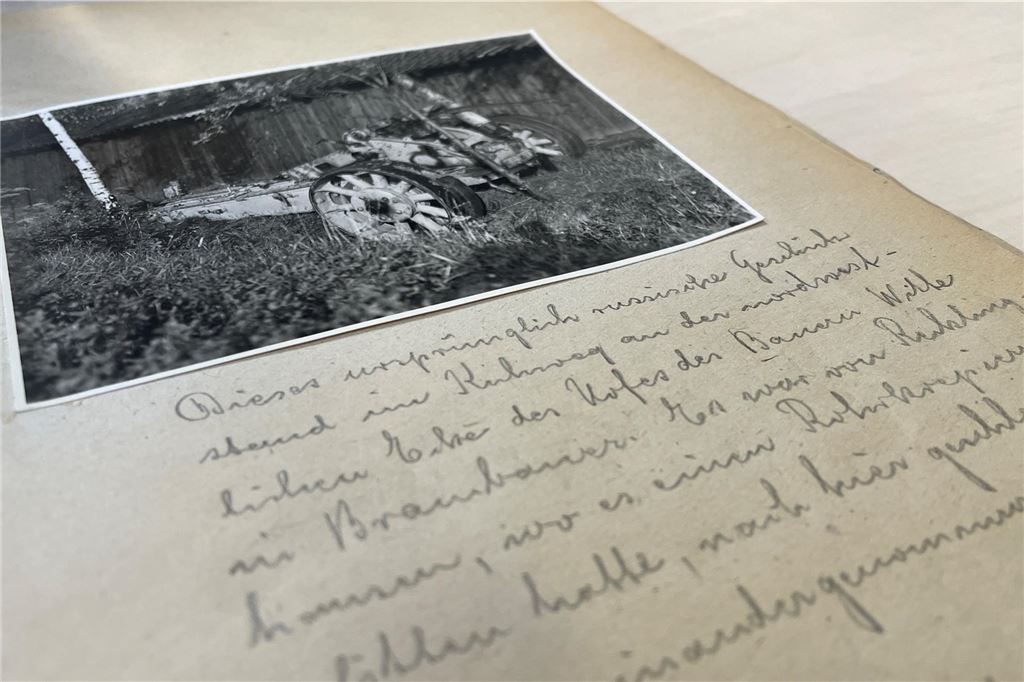 Dieses ursprünglich russische Geschütz
stand im Kuhweg an der nordwest-
lichen Ecke des Hofes des Bauern Wille
in Brambauer. Es war von Reckling
hausen, wo es einen Rohrkrepier
litten hatte, nach hier geschle
einandergenommen